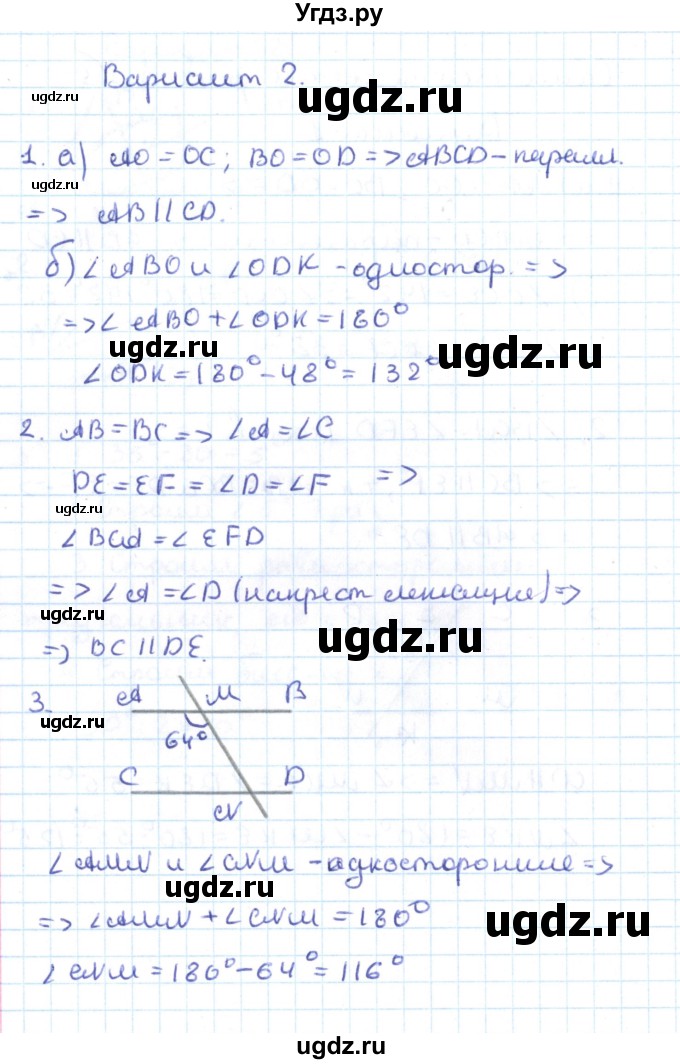 Угдз.ру
Вариант 2.
ugdz.ru
ugdz.ru
1. а) AO = OC; BO = OD => ABCD – паралл.
ugdz.ru
=> AB || CD.
б) ∠ABO и ∠ODK – одностор. =>
ugdz.ru
=> ∠ABO + ∠ODK = 180°
ugdz.ru
ugdz.ru
∠ODK = 180° – 48° = 132°
2. AB = BC => ∠A = ∠C
DE = EF = ∠D = ∠F =>
ugdz.ru
∠BCA = ∠EFD
=> ∠A = ∠D (накрест лежащие) =>
ugdz.ru
ugdz.ru
=> BC || DE.
3. A M B
ugdz.ru
64°
C D
N
∠AMN и ∠CNM – односторонние =>
ugdz.ru
=> ∠AMN + ∠CNM = 180°
ugdz.ru
∠CNM = 180° – 64° = 116°
ugdz.ru
ugdz.ru